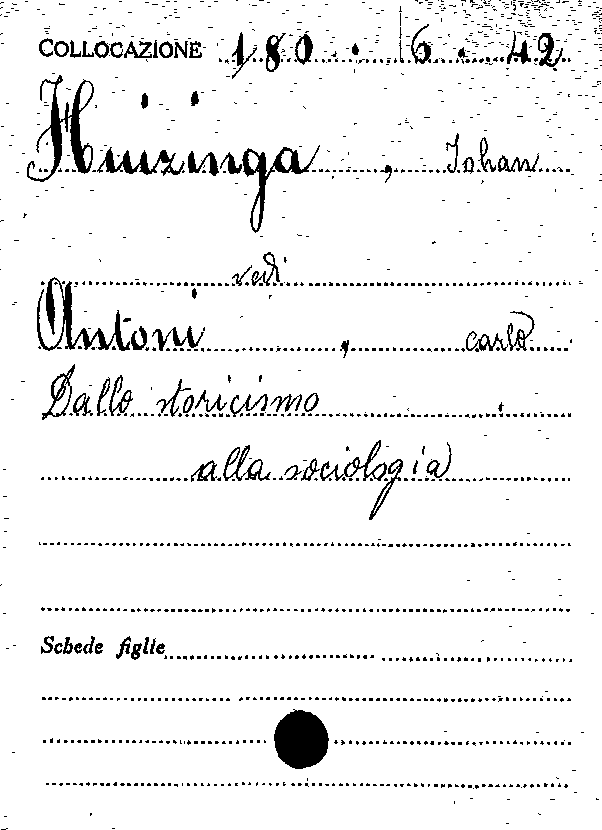 COLLOCAZIONE 180 . 6 . 42
Huizinga , Johan
vedi
Antoni , carlo
Dallo storicismo
alla sociologia
Schede figlie